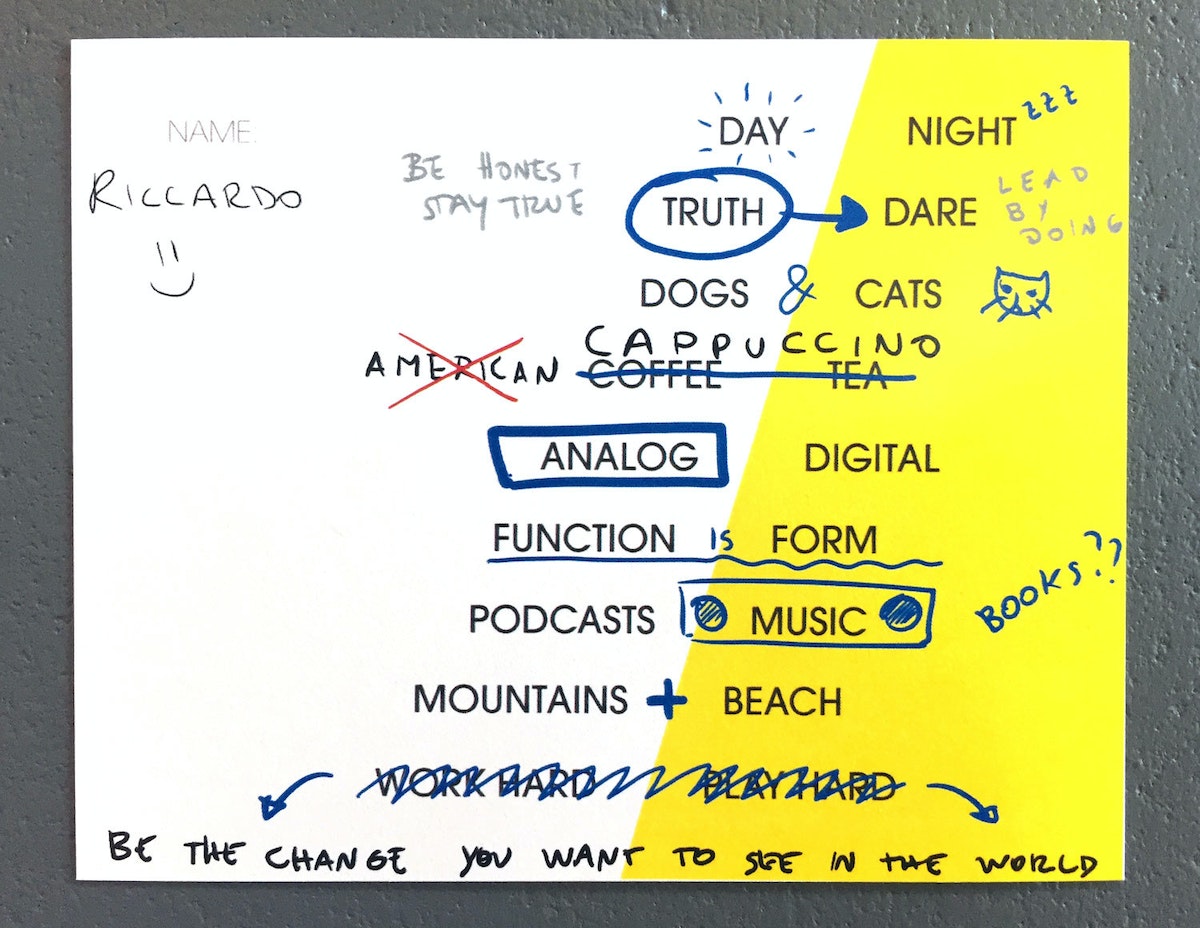 NAME:
RICCARDO
DAY NIGHT zzz
BE HONEST
STAY TRUE
TRUTH DARE
LEAD
BY
DOING
DOGS & CATS
CAPPUCCINO
AMERICAN COFFEE TEA
ANALOG DIGITAL
FUNCTION IS FORM
PODCASTS MUSIC
BOOKS??
MOUNTAINS + BEACH
WORK HARD PLAY HARD
BE THE CHANGE YOU WANT TO SEE IN THE WORLD